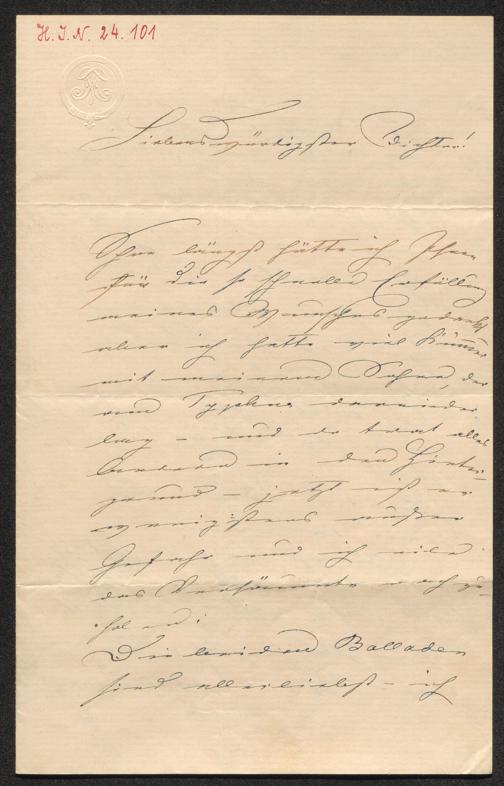 H. I. N. 24. 101
Liebenswürdigster Dichter!
Schon längst hätte ich Ihnen
für die so schnelle Erfüllung
meines Wunsches gedankt
aber ich hatte viel Kummer
mit meinem Sohne, der
am Typhus darnieder
lag – und da trat alles
Andere in den Hinter-
grund – jetzt ist er
wenigstens außer
Gefahr und ich eile
das Versäumte nachzu-
holen:
Die beiden Balladen
sind allerliebst – ich